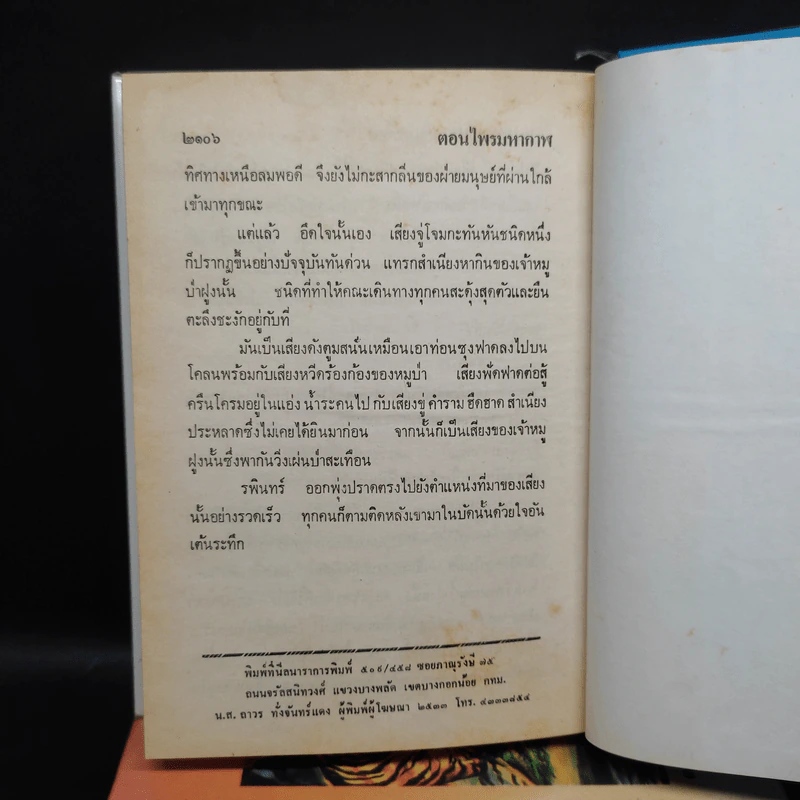 ๒๑๐๖ ตอนไพรมหากาฬ
ทิศทางเหนือลมพอดี จึงยังไม่กะสากลิ่นของฝ่ายมนุษย์ที่ผ่านใกล้
เข้ามาทุกขณะ
แต่แล้ว อึดใจนั้นเอง เสียงจู่โจมกะทันหันชนิดหนึ่ง
ก็ปรากฏขึ้นอย่างปัจจุบันทันด่วน แทรกสำเนียงหากินของเจ้าหมู
ป่าฝูงนั้น ชนิดที่ทำให้คณะเดินทางทุกคนสะดุ้งสุดตัวและยืน
ตะลึงชะงักอยู่กับที่
มันเป็นเสียงดังตูมสนั่นเหมือนเอาท่อนซุงฟาดลงไปบน
โคลนพร้อมกับเสียงหวีดร้องก้องของหมูป่า เสียงฟัดฟาดต่อสู้
ครืนโครมอยู่ในแอ่ง น้ำระคนไป กับเสียงขู่ คำราม ฮึดฮาด สำเนียง
ประหลาดซึ่งไม่เคยได้ยินมาก่อน จากนั้นก็เป็นเสียงของเจ้าหมู
ฝูงนั้นซึ่งพากันวิ่งเผ่นป่าสะเทือน
รพินทร์ ออกพุ่งปราดตรงไปยังตำแหน่งที่มาของเสียง
นั้นอย่างรวดเร็ว ทุกคนก็ตามติดหลังเขามาในบัดนั้นด้วยใจอัน
เต้นระทึก
พิมพ์ที่นีลนาราการพิมพ์ ๕๑๖/๔๕๘ ซอยภาณุรังษี ๗๕
ถนนจรัลสนิทวงศ์ แขวงบางพลัด เขตบางกอกน้อย กทม.
น.ส. ถาวร ทั่งจันทร์แดง ผู้พิมพ์ผู้โฆษณา ๒๕๓๓ โทร. ๔๓๓๓๘๕๔